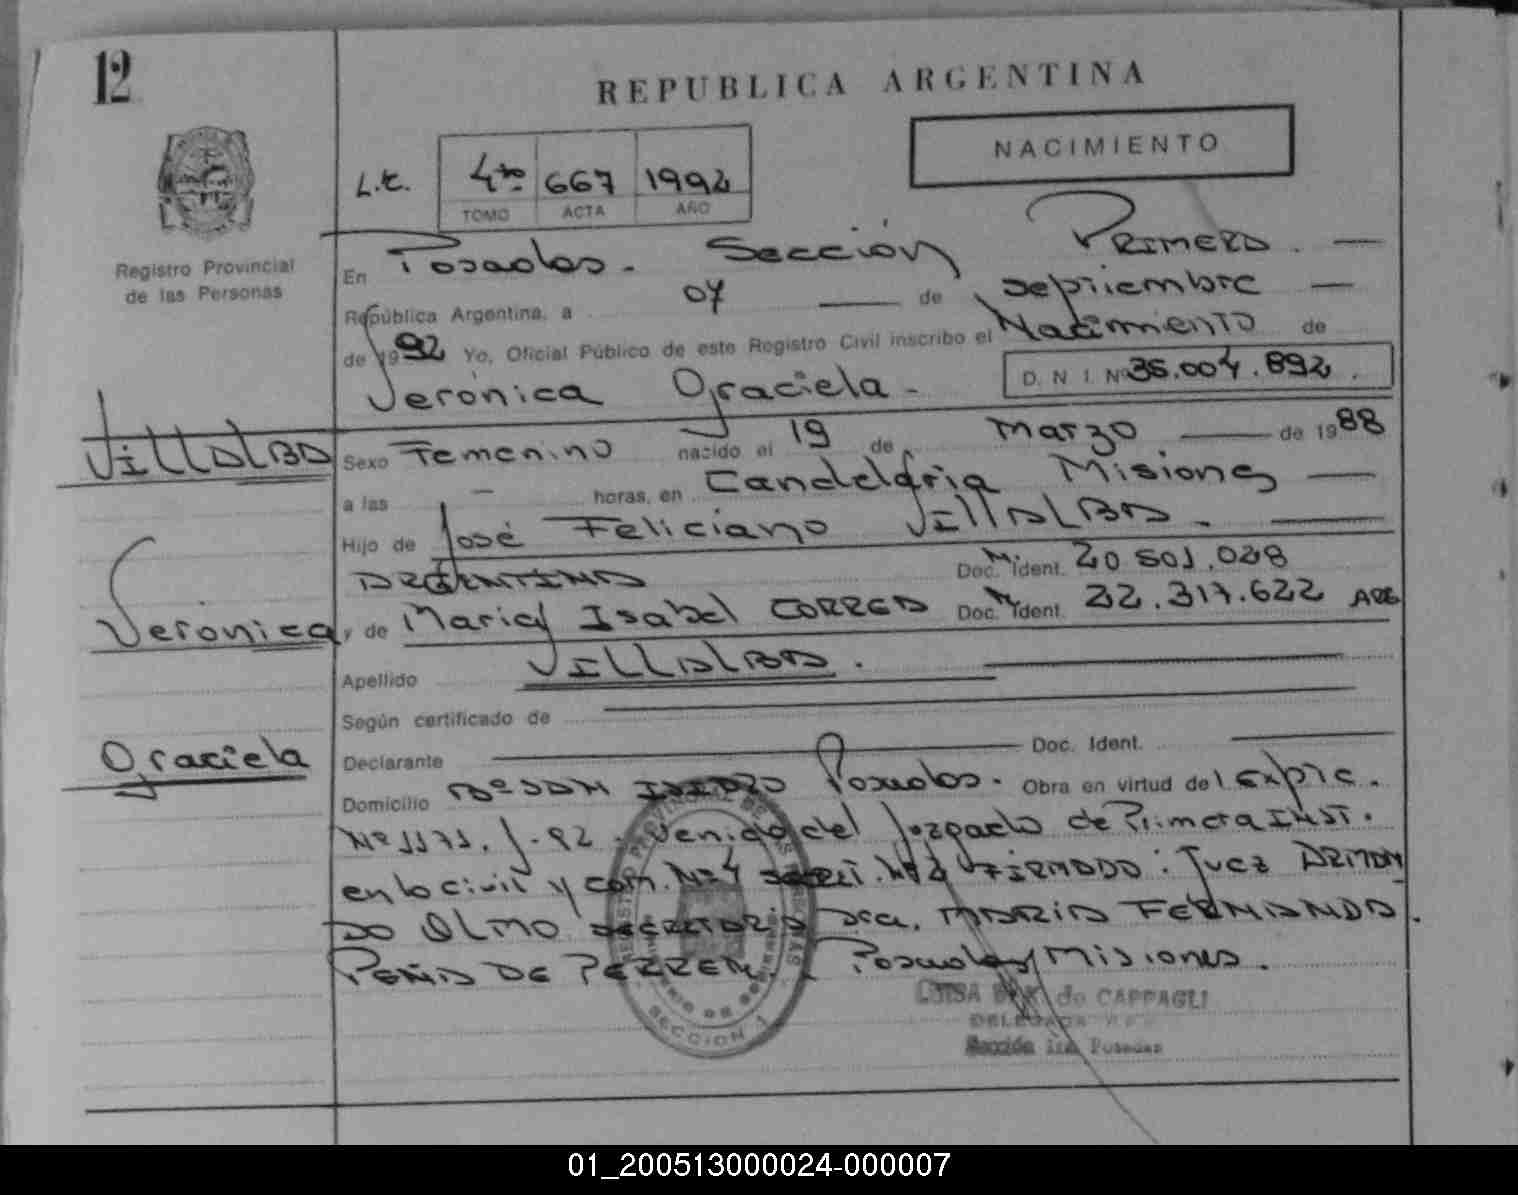 12
REPUBLICA ARGENTINA
NACIMIENTO
L.E. 4to. 667 1992
TOMO ACTA AÑO
Registro Provincial
de las Personas
En Posadas. Sección Primera. —
República Argentina, a 07 — de septiembre —
de 1992 Yo, Oficial Público de este Registro Civil inscribo el Nacimiento de
Verónica Graciela - D. N. I. Nº 36.004.892.
Villalba
Sexo Femenino nacido el 19 de marzo — de 1988
a las — horas, en Candelaria Misiones —
Hijo de José Feliciano Villalba. —
Argentina Doc. Ident. 20.501.028
Verónica
y de María Isabel CORREA Doc. Ident. 22.317.622 ARG
Apellido VILLALBA. —
Según certificado de —
Graciela
Declarante — Doc. Ident. —
Domicilio Bº SAN ISIDRO Posadas. Obra en virtud del Expte.
Nº 1171. J-92. venido del Juzgado de Primera INST.
en lo civil y com. Nº 4 Nº 2 FIRMADO: Juez ARMAN
DO OLMO SECRETARIA Dra. MARIA FERNANDA.
PEÑA DE PERREM. Posadas Misiones.
SECCION 1
LUISA de CAPPAGLI
DELEGADA
Sección 1ra Posadas
01_200513000024-000007